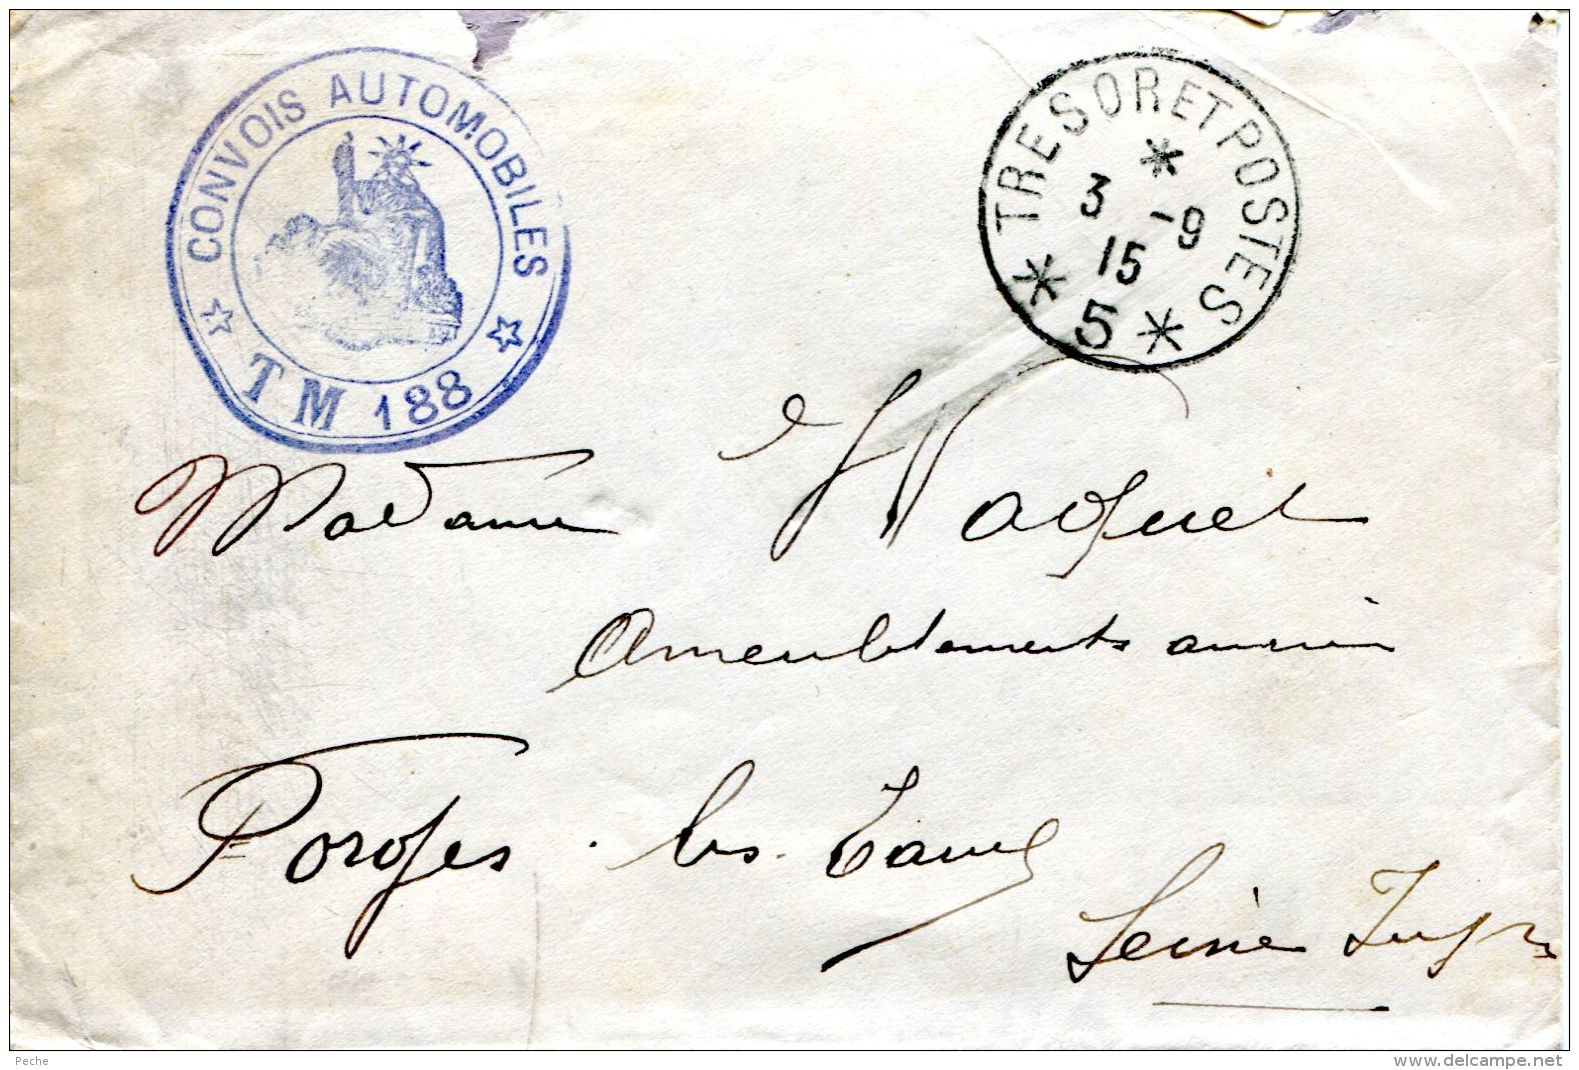 CONVOIS AUTOMOBILES
TM 188
TRESOR ET POSTES
3 -9
15
5
Madame
Ameublements
Forges. les.
Seine Infre
Peche
www.delcampe.net